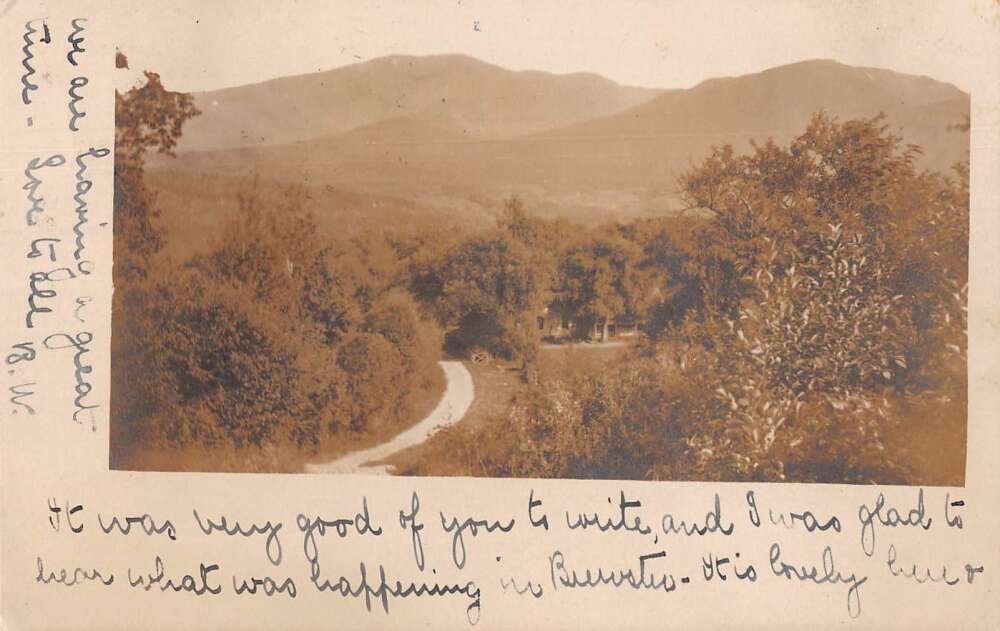 It was very good of you to write, and I was glad to
hear what was happening in Brewster - It is lovely here &
we are having a great
time - Love to all B. W.